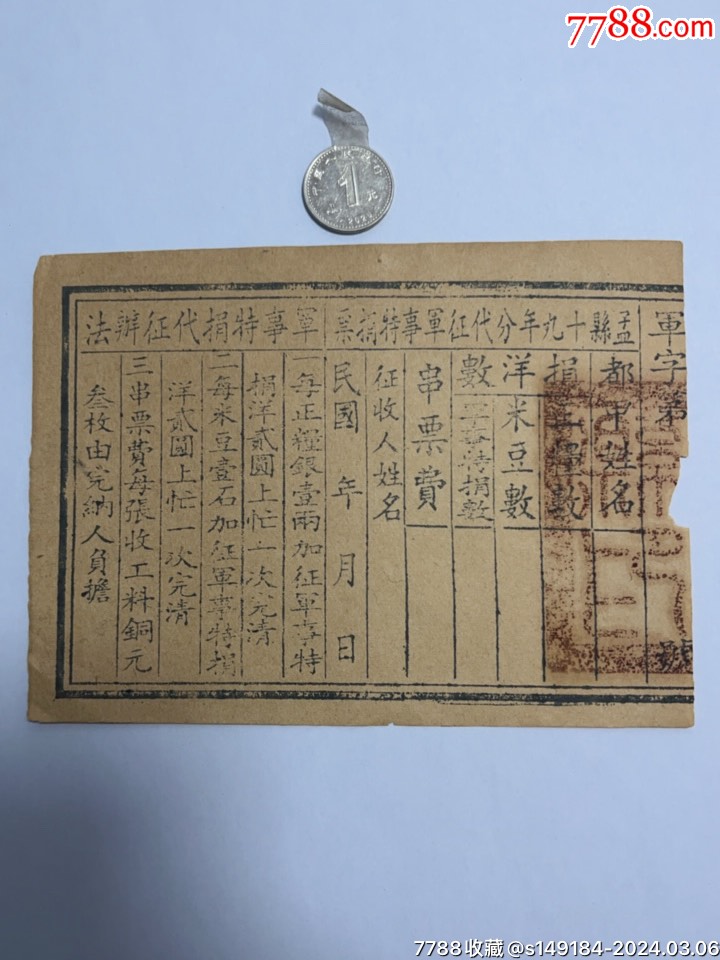 7788.com
1
元
軍字第 號
孟縣十九年分代征軍事特捐票
都甲姓名
捐 糧數
洋 米豆數
數 軍事特捐數
串票費
征收人姓名
民國 年 月 日
軍事特捐代征辦法
一每正糧銀壹兩加征軍事特
捐洋貳圓上忙一次完清
二每米豆壹石加征軍事特捐
洋貳圓上忙一次完清
三串票費每張收工料銅元
叁枚由完納人負擔
7788收藏@s149184-2024.03.06